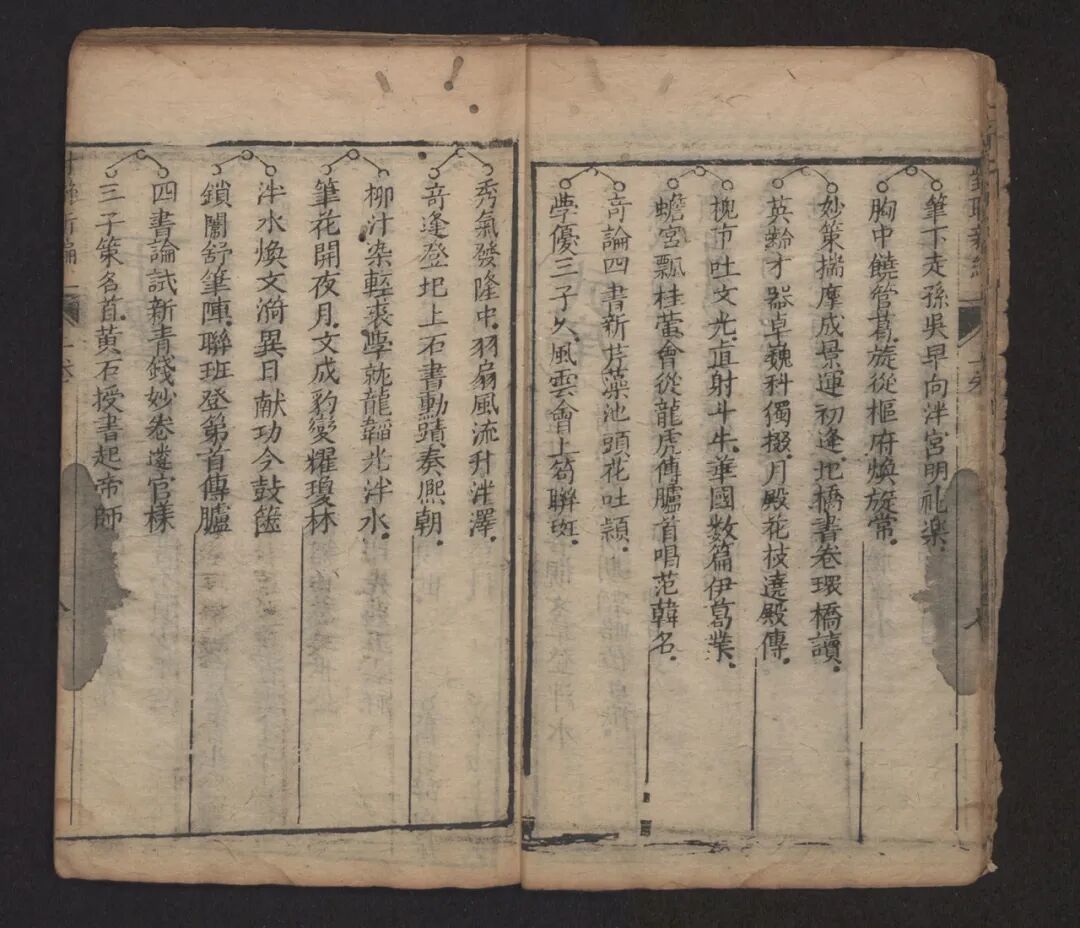 對聯新編 一卷
筆下走孫吳早向泮宮明礼楽.
胸中饒管葛.旋從樞府煥旂常.
妙策揣摩成景運初逢.圯橋書卷環橋讀.
英齡才器卓魏科獨掇.月殿花枝遶殿傳.
槐市吐文光.直射斗牛.華國数篇伊葛業.
蟾宮飄桂蕋會從龍虎傳臚首唱范韓名.
竒論四書新芹藻池頭花吐頴.
斈優三子久.風雲會上笱聯班.
秀氣發隆中.羽扇風流升泮澤.
竒逢登圯上石書勳蹟.奏熙朝.
柳汁染輕裘.斈就龍韜光泮水.
筆花開夜月.文成豹變耀瓊林
泮水煥文漪異日献功今鼓篋
鎖闈舒筆陣.聯班登第首傳臚
四書論試新青錢妙卷遵官樣
三子策名首.黃石授書起帝師
新編 一卷 八